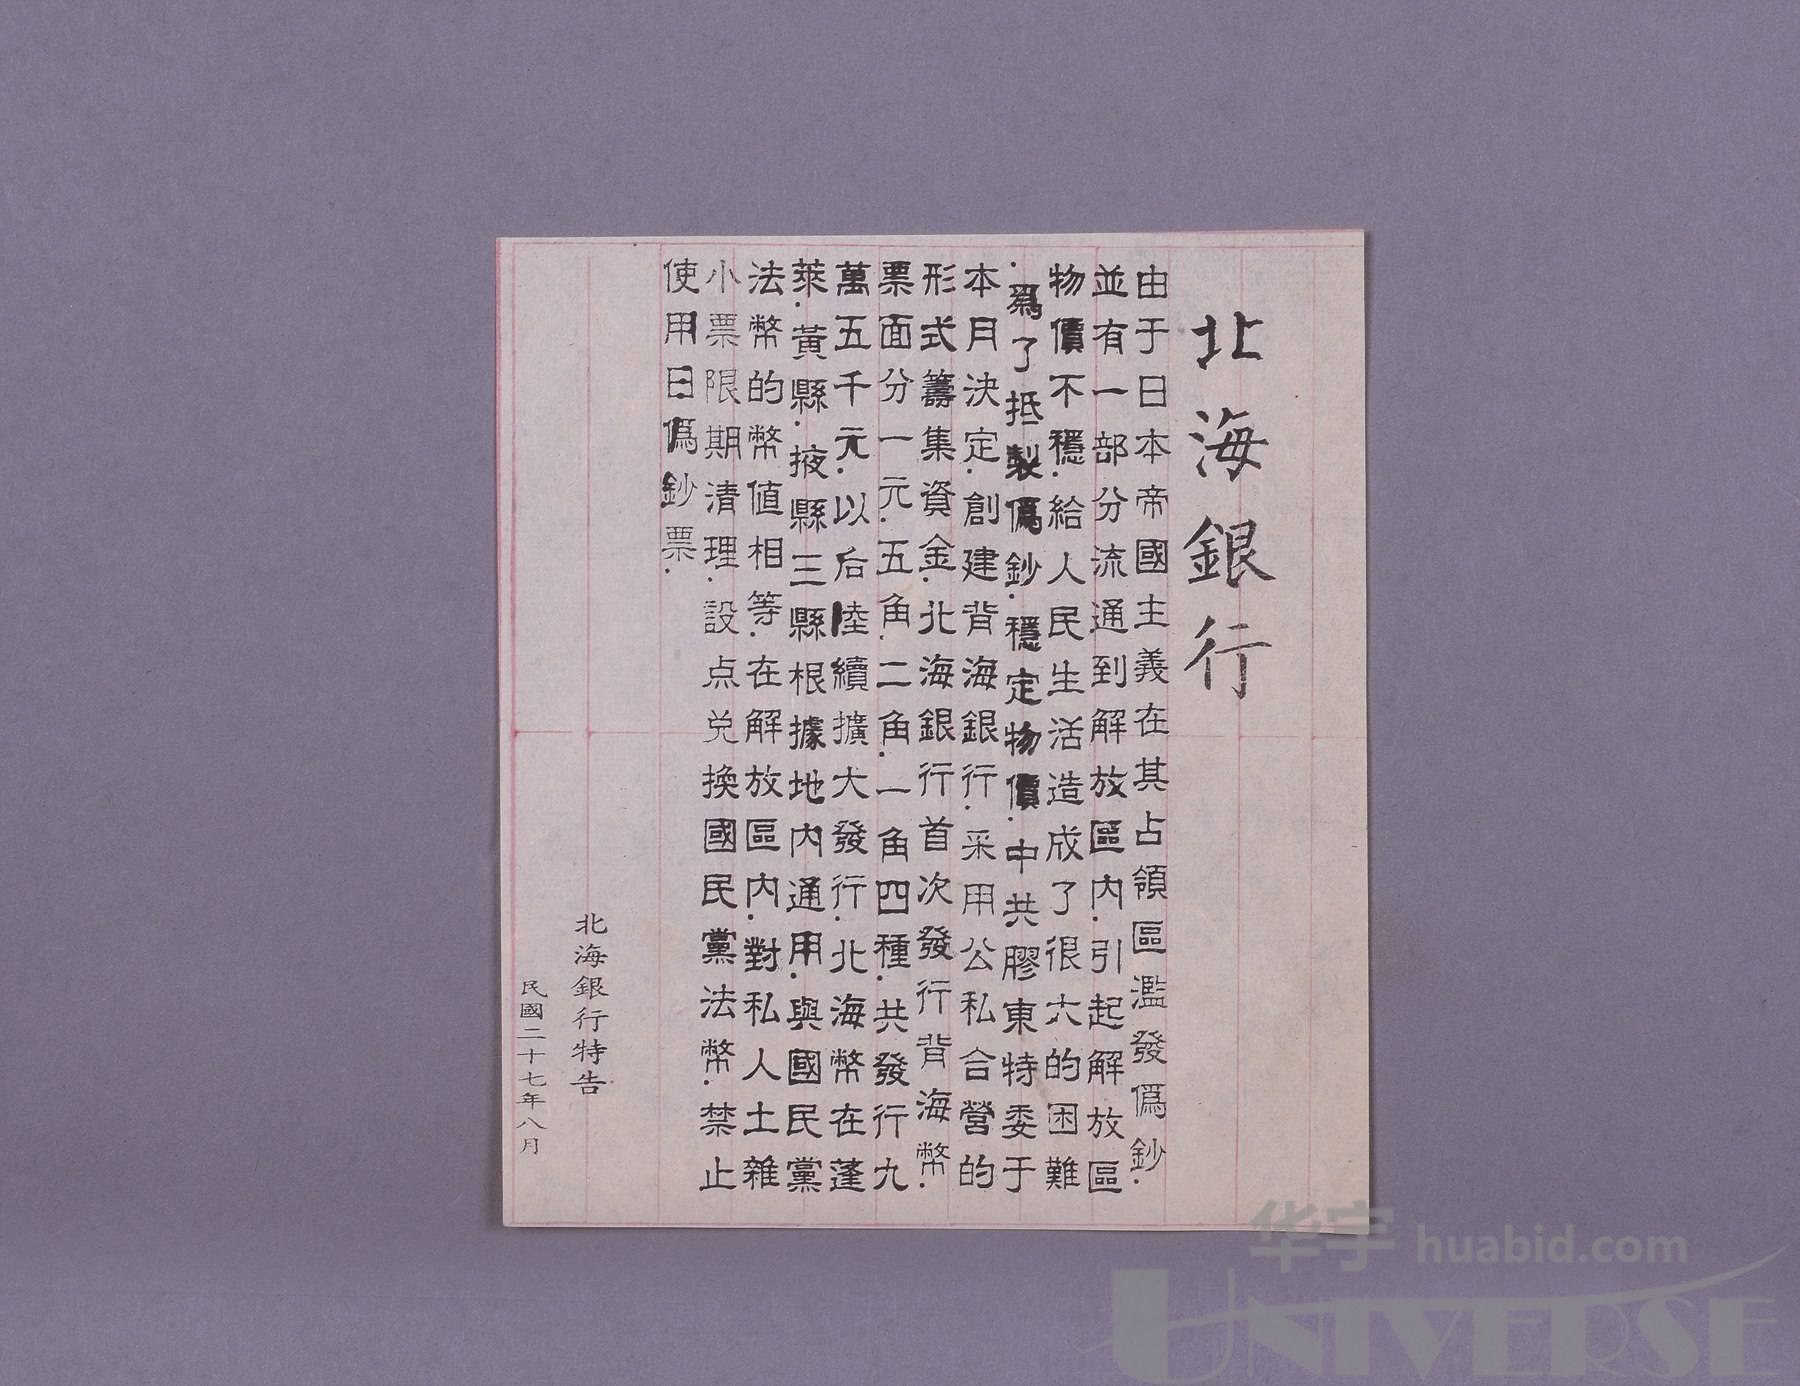 北海銀行
由于日本帝國主義在其占領區濫發僞鈔.
並有一部分流通到解放區內.引起解放區
物價不穩.給人民生活造成了很大的困難
.爲了抵製僞鈔.穩定物價.中共膠東特委于
本月決定.創建背海銀行.采用公私合營的
形式籌集資金.北海銀行首次發行背海幣.
票面分一元.五角.二角.一角四種.共發行九
萬五千元.以后陸續擴大發行.北海幣在蓬
萊.黃縣.掖縣三縣根據地內通用.與國民黨
法幣的幣值相等.在解放區內.對私人土雜
小票限期清理.設点兑換國民黨法幣.禁止
使用日僞鈔票.
北海銀行特告
民國二十七年八月
华宇 huabid.com
UNIVERSE